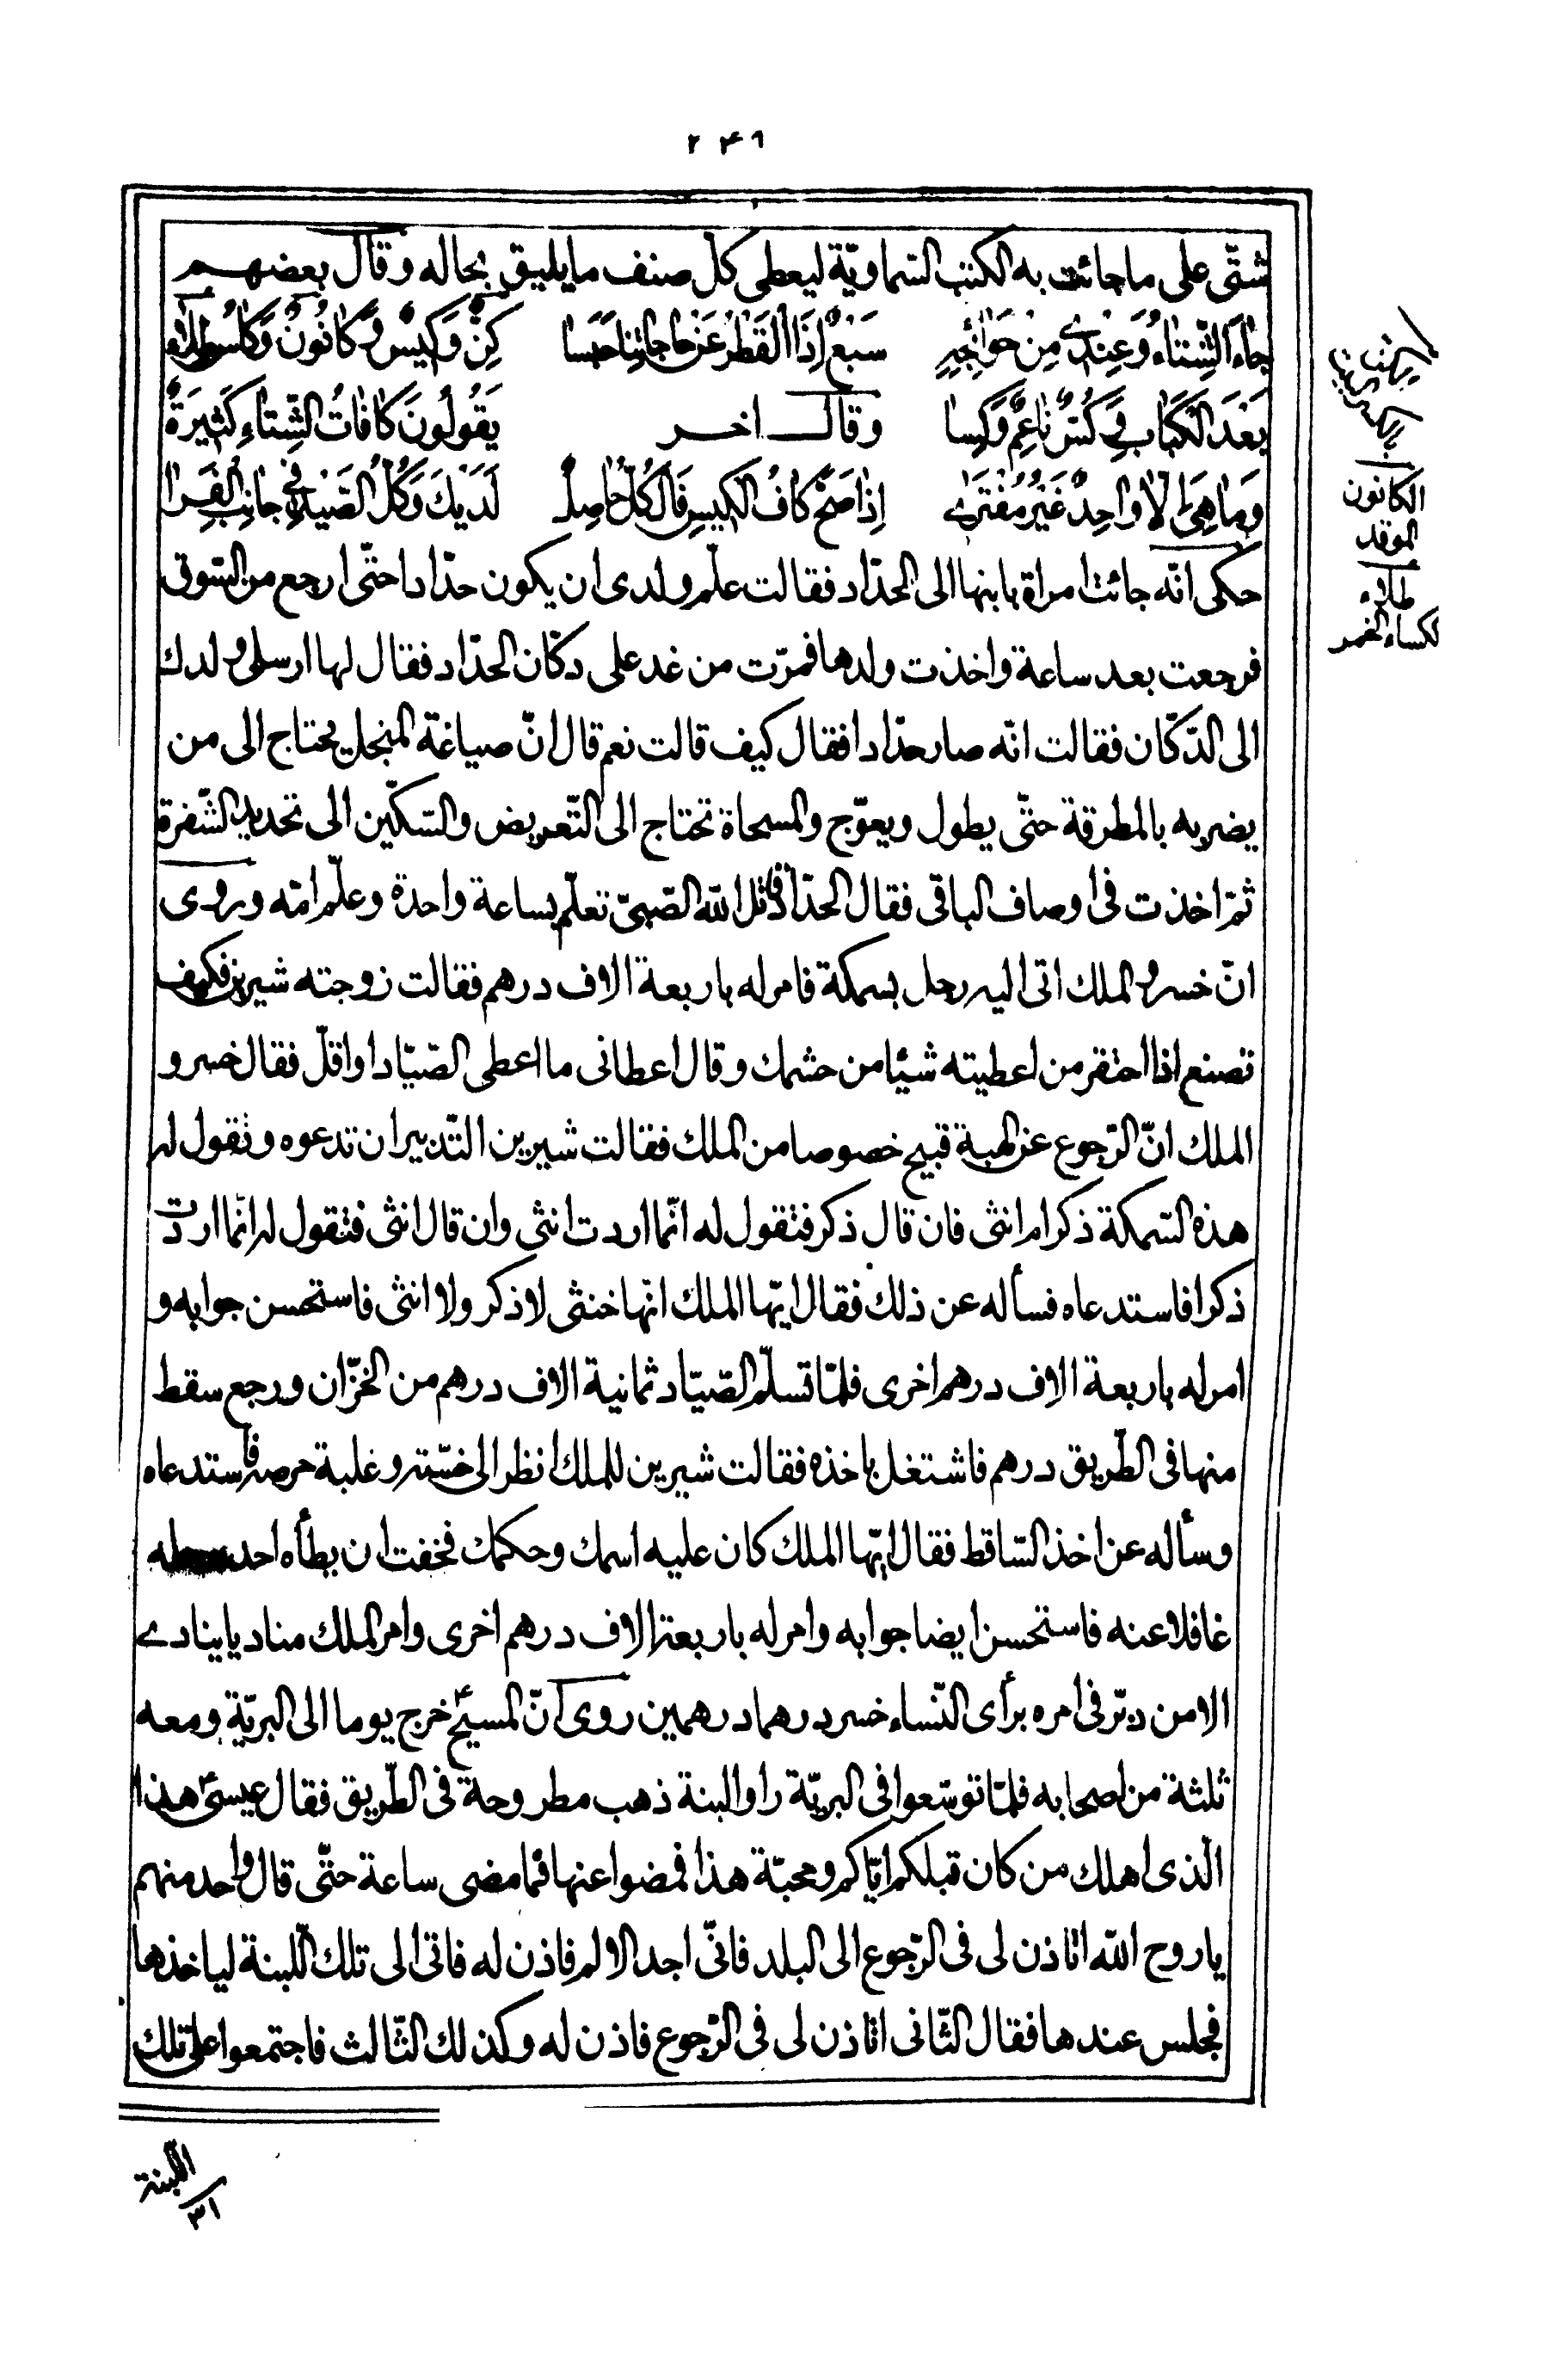 ٢٤٩
شتّى على ما جائت به الكتب السّماويّة ليعطى كلّ صنف ما يليق بحاله وقال بعضهم
جَاءَ الشِّتَاءُ وَعِنْدِي مِنْ حَوَائِجِهِ سَبْعٌ إِذَا الْقَطْرُ عَنْ حَاجَاتِنَا حَبَسَا كِنٌّ وَكِيسٌ وَكَانُونٌ وَكَأسُ طِلَاءٍ
بَعْدَ الْكَبَابِ وَكُسٌّ نَاعِمٌ وَكِسَا وقال اخر يَقُولُونَ كَافَاتُ الشِّتَاءِ كَثِيرَةٌ
وَمَا هِيَ إِلَّا وَاحِدٌ غَيْرُ مُفْتَرَى إِذَا صَحَّ كَافُ الْكِيسِ فَالْكُلُّ حَاصِلٌ لَدَيْكَ وَكُلُّ الصَّيْدِ فِي جَانِبِ الْفَرَا
حكى انّه جائت امراة بابنها الى الحدّاد فقالت علّم ولدى ان يكون حدّادا حتّى ارجع من السّوق
فرجعت بعد ساعة واخذت ولدها فمرّت من غد على دكّان الحدّاد فقال لها ارسلى ولدك
الى الدّكّان فقالت انّه صار حدّادا فقال كيف قالت نعم قال انّ صياغة المنجل يحتاج الى من
يضربه بالمطرقة حتّى يطول ويعوّج والمسحاة تحتاج الى التّعريض والسّكّين الى تحديد الشّفرة
ثمّ اخذت فى اوصاف الباقى فقال الحدّاد قاتل الله الصّبىّ تعلّم بساعة واحدة وعلّم امّه وروى
انّ خسرو الملك اتى اليه رجل بسمكة فامر له باربعة الاف درهم فقالت زوجته شيرين فكيف
تصنع اذا احتقر من اعطيته شيئا من حشمك وقال اعطانى ما اعطى الصّيّاد او اقلّ فقال خسرو
الملك انّ الرّجوع عن الهبة قبيح خصوصا من الملك فقالت شيرين التّدبير ان تدعوه وتقول له
هذه السّمكة ذكر ام انثى فان قال ذكر فتقول له انّما اردت انثى وان قال انثى فتقول له انّما اردت
ذكرا فاستدعاه فسأله عن ذلك فقال ايّها الملك انّها خنثى لا ذكر ولا انثى فاستحسن جوابه و
امر له باربعة الاف درهم اخرى فلمّا تسلّم الصّيّاد ثمانية الاف درهم من الخزّان ورجع سقط
منها فى الطّريق درهم فاشتغل باخذه فقالت شيرين للملك انظر الى خسّته وغلبة حرصه فاستدعاه
وسأله عن اخذ السّاقط فقال ايّها الملك كان عليه اسمك وحكمك فخفت ان يطأه احد
غافلا عنه فاستحسن ايضا جوابه وامر له باربعة الاف درهم اخرى وامر الملك مناديا ينادى
الا من دبّر فى امره برأى النّساء خسر درهما درهمين روى انّ المسيح ع خرج يوما الى البريّة ومعه
ثلثة من اصحابه فلمّا توسّعوا فى البريّة راوا لبنة ذهب مطروحة فى الطّريق فقال عيسى ع هذا
الّذى اهلك من كان قبلكم ايّاكم ومحبّة هذا فمضوا عنها فما مضى ساعة حتّى قال واحد منهم
يا روح الله اتاذن لى فى الرّجوع الى البلد فانّى اجد الالم فاذن له فاتى الى تلك اللّبنة لياخذها
فجلس عندها فقال الثّانى اتاذن لى فى الرّجوع فاذن له وكذلك الثّالث فاجتمعوا على تلك
الكانون
الموقد
طلاء
لكساء الخمر
اللّبنة
٣١